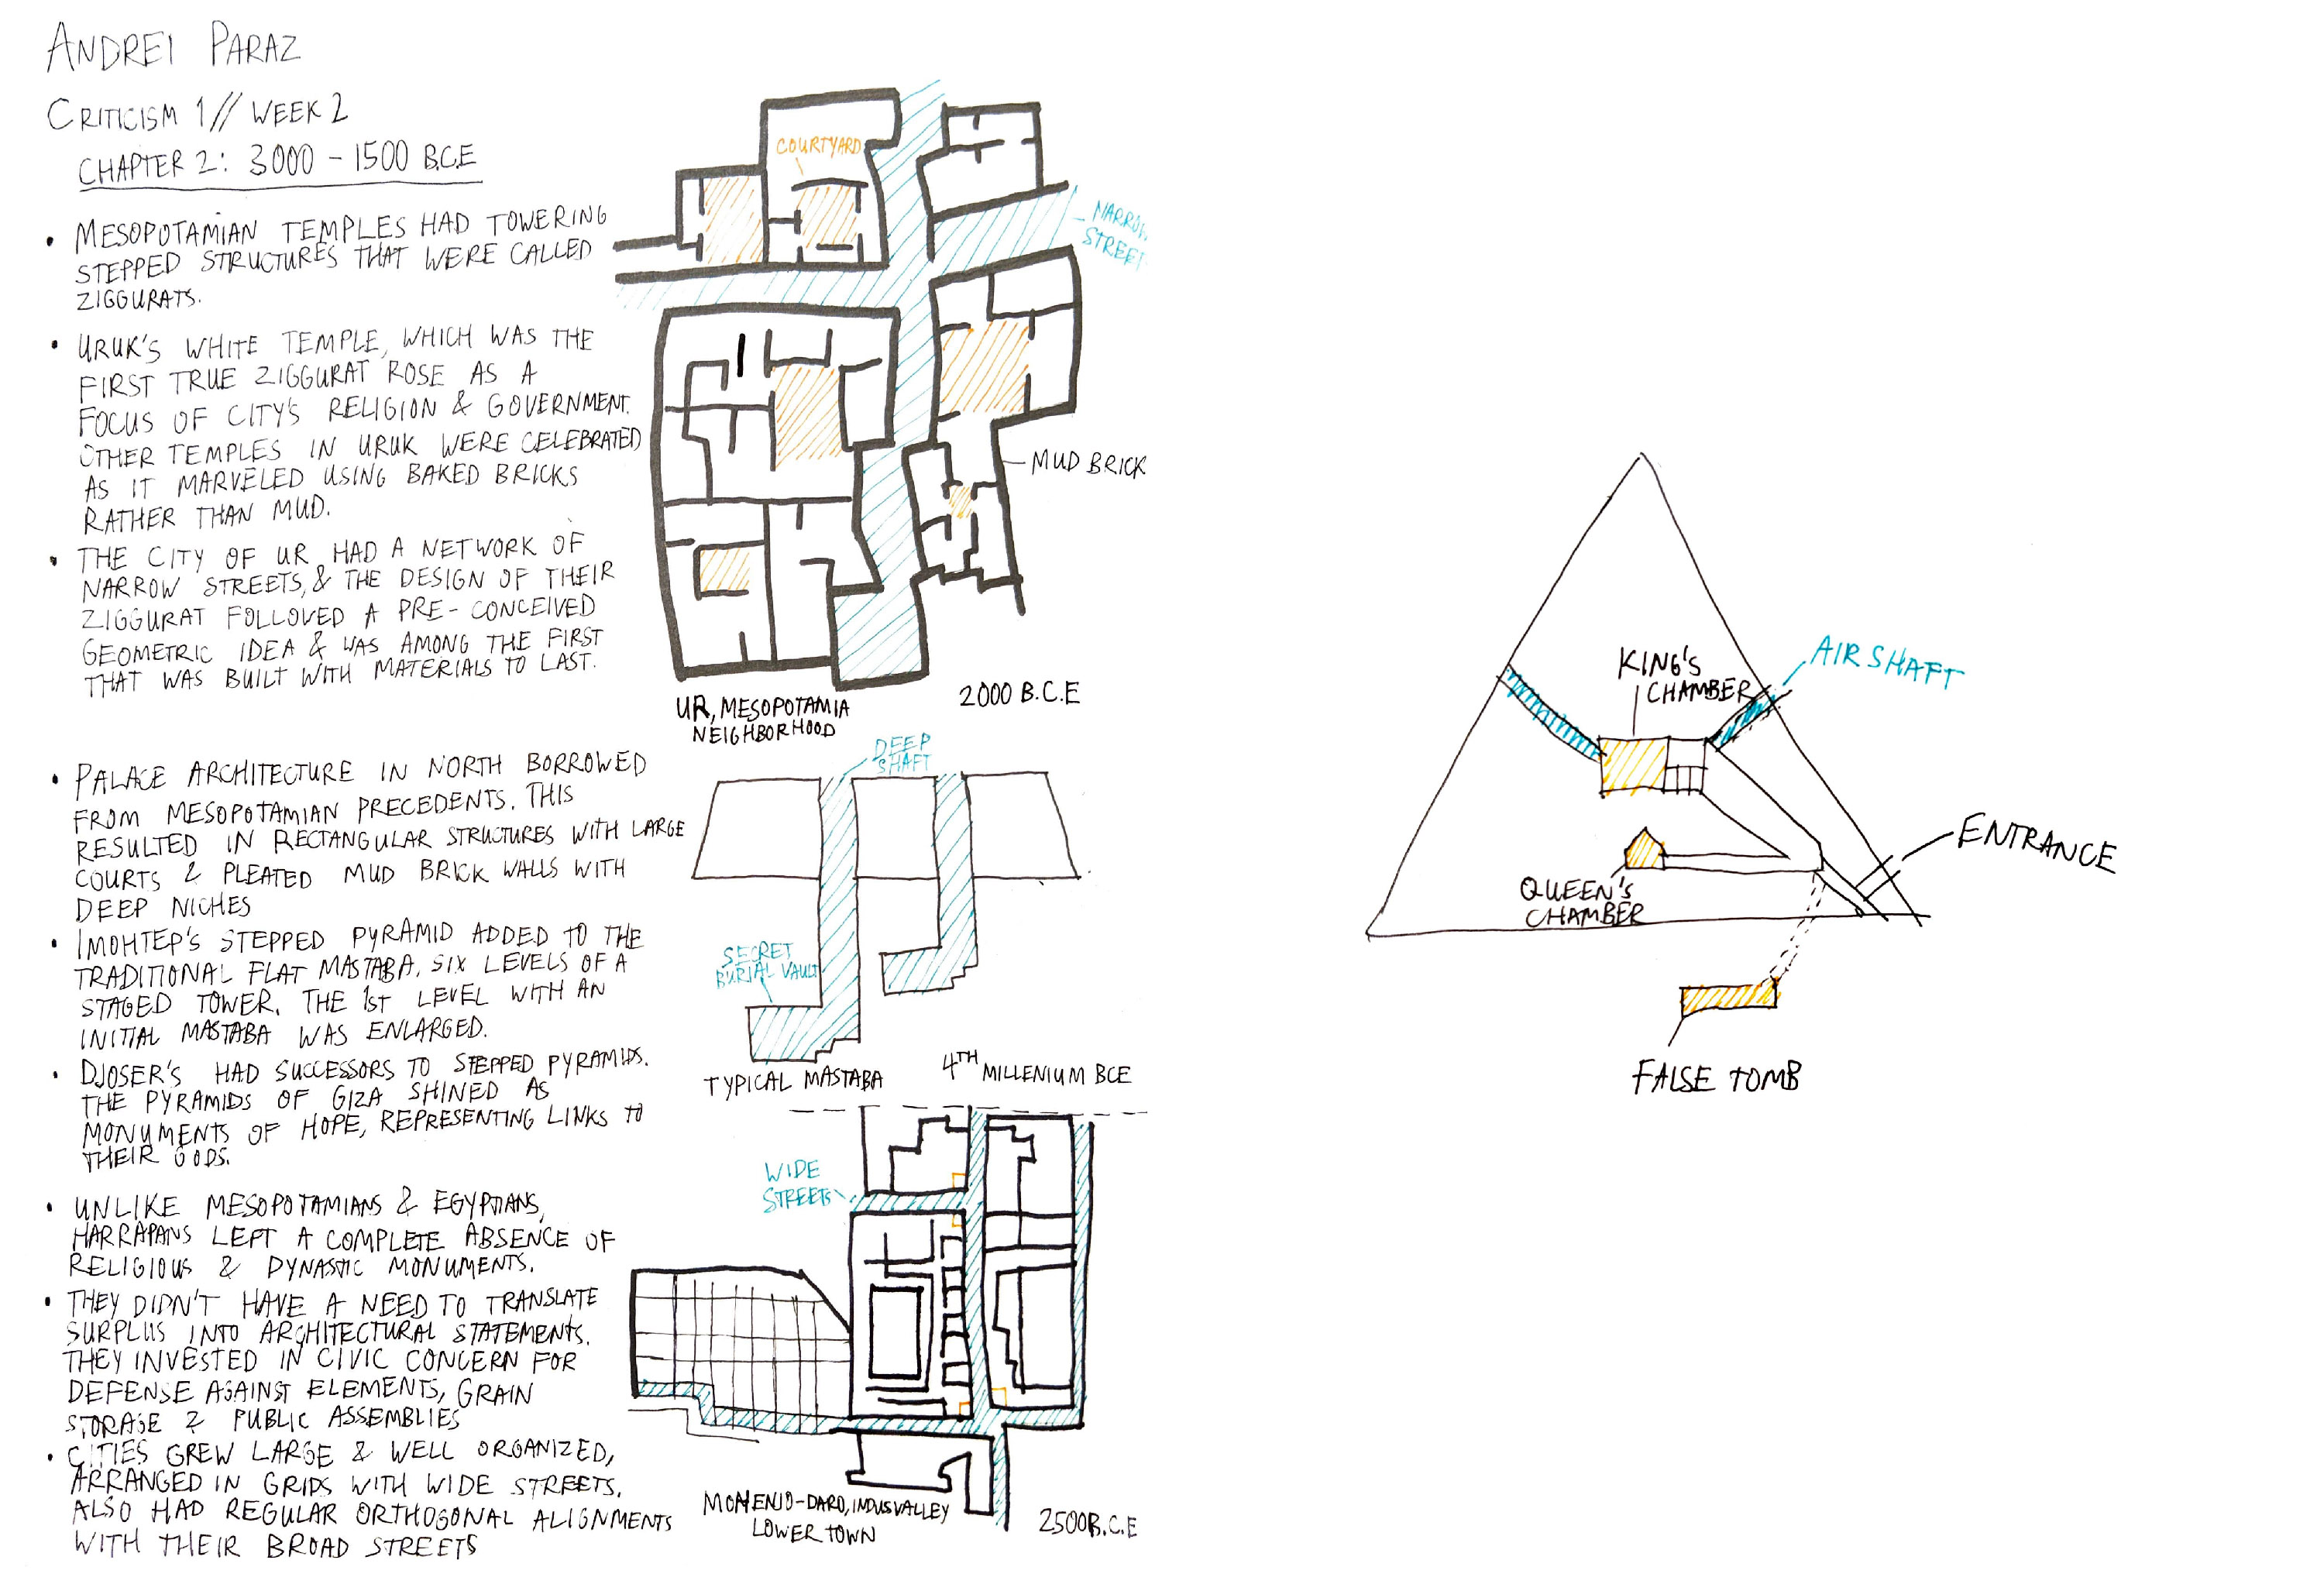 ANDREI PARAZ
CRITICISM 1// WEEK 2
CHAPTER 2: 3000 - 1500 B.C.E
• MESOPOTAMIAN TEMPLES HAD TOWERING
STEPPED STRUCTURES THAT WERE CALLED
ZIGGURATS.
• URUK'S WHITE TEMPLE, WHICH WAS THE
FIRST TRUE ZIGGURAT ROSE AS A
FOCUS OF CITY'S RELIGION & GOVERNMENT.
OTHER TEMPLES IN URUK WERE CELEBRATED
AS IT MARVELED USING BAKED BRICKS
RATHER THAN MUD.
• THE CITY OF UR HAD A NETWORK OF
NARROW STREETS, & THE DESIGN OF THEIR
ZIGGURAT FOLLOWED A PRE-CONCEIVED
GEOMETRIC IDEA & WAS AMONG THE FIRST
THAT WAS BUILT WITH MATERIALS TO LAST.
COURTYARD
NARROW
STREET
MUD BRICK
UR, MESOPOTAMIA
NEIGHBORHOOD
2000 B.C.E
• PALACE ARCHITECTURE IN NORTH BORROWED
FROM MESOPOTAMIAN PRECEDENTS. THIS
RESULTED IN RECTANGULAR STRUCTURES WITH LARGE
COURTS & PLEATED MUD BRICK WALLS WITH
DEEP NICHES
• IMOHTEP'S STEPPED PYRAMID ADDED TO THE
TRADITIONAL FLAT MASTABA, SIX LEVELS OF A
STAGED TOWER. THE 1ST LEVEL WITH AN
INITIAL MASTABA WAS ENLARGED.
• DJOSER'S HAD SUCCESSORS TO STEPPED PYRAMIDS.
THE PYRAMIDS OF GIZA SHINED AS
MONUMENTS OF HOPE, REPRESENTING LINKS TO
THEIR GODS.
DEEP
SHAFT
SECRET
BURIAL VAULT
TYPICAL MASTABA
4TH MILLENIUM BCE
• UNLIKE MESOPOTAMIANS & EGYPTIANS,
HARRAPANS LEFT A COMPLETE ABSENCE OF
RELIGIOUS & DYNASTIC MONUMENTS.
• THEY DIDN'T HAVE A NEED TO TRANSLATE
SURPLUS INTO ARCHITECTURAL STATEMENTS.
THEY INVESTED IN CIVIC CONCERN FOR
DEFENSE AGAINST ELEMENTS, GRAIN
STORAGE & PUBLIC ASSEMBLIES
• CITIES GREW LARGE & WELL ORGANIZED,
ARRANGED IN GRIDS WITH WIDE STREETS.
ALSO HAD REGULAR ORTHOGONAL ALIGNMENTS
WITH THEIR BROAD STREETS
WIDE
STREETS
MOHENJO-DARO, INDUS VALLEY
LOWER TOWN
2500 B.C.E
KING'S
CHAMBER
AIR SHAFT
ENTRANCE
QUEEN'S
CHAMBER
FALSE TOMB